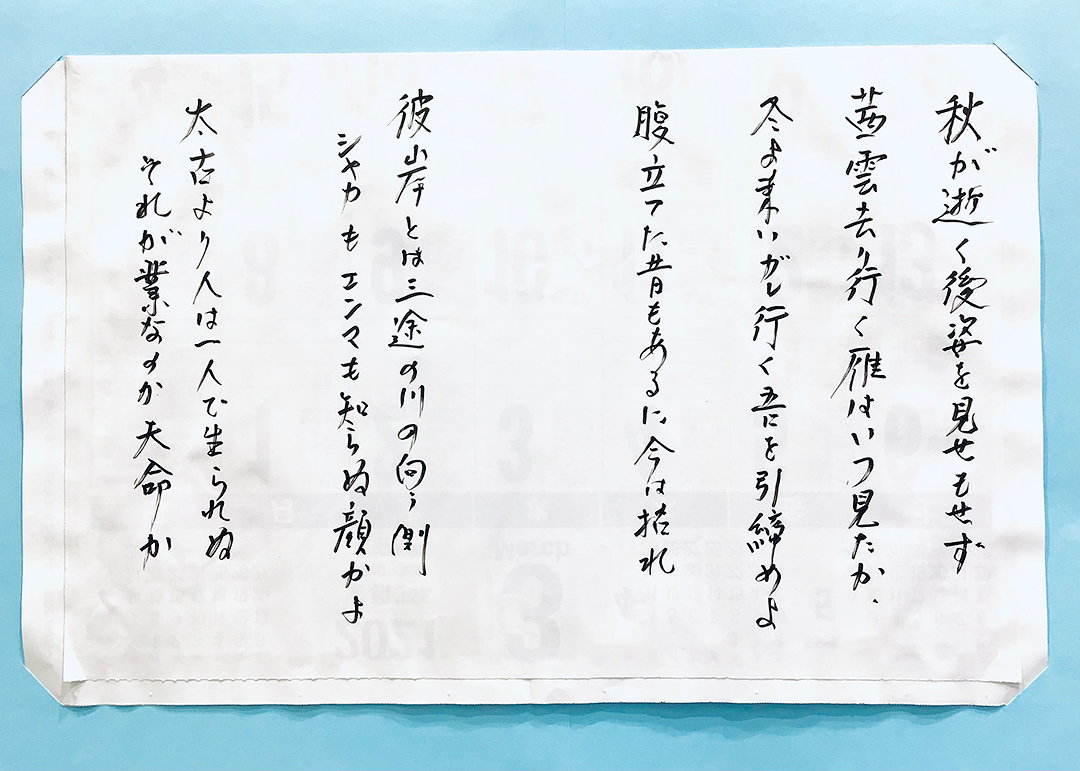 秋が逝く後姿を見せもせず
茜雲去り行く雁はいつ見たか、
冬よ来いガレ行く吾を引締めよ
腹立てた昔もあるに、今は枯れ
彼岸とは三途の川の向う側
シャカもエンマも知らぬ顔かよ
太古より人は一人で生られぬ
それが業なのか天命か
March
3
2021